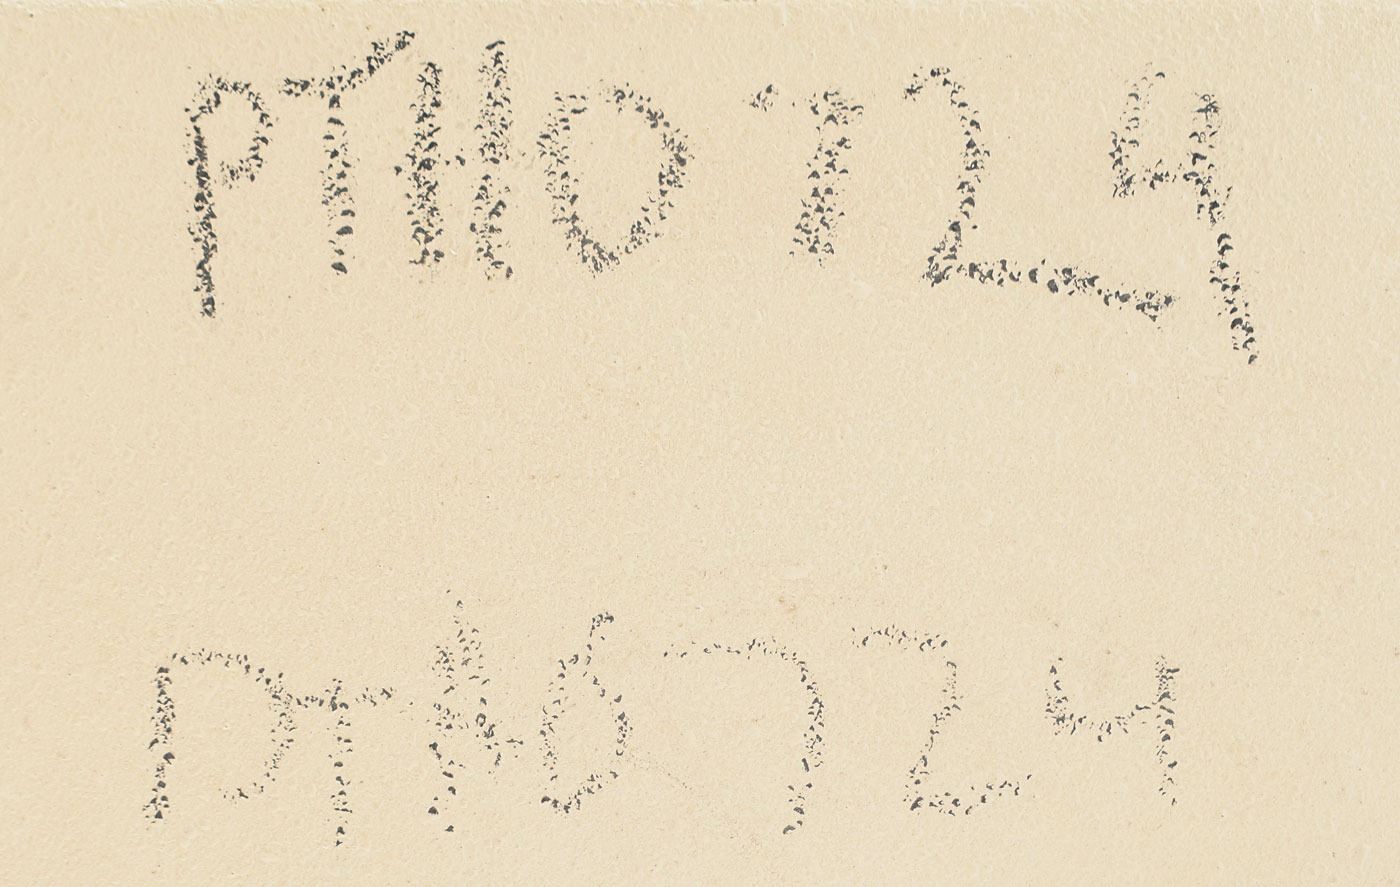 PTHO724
PTHO724